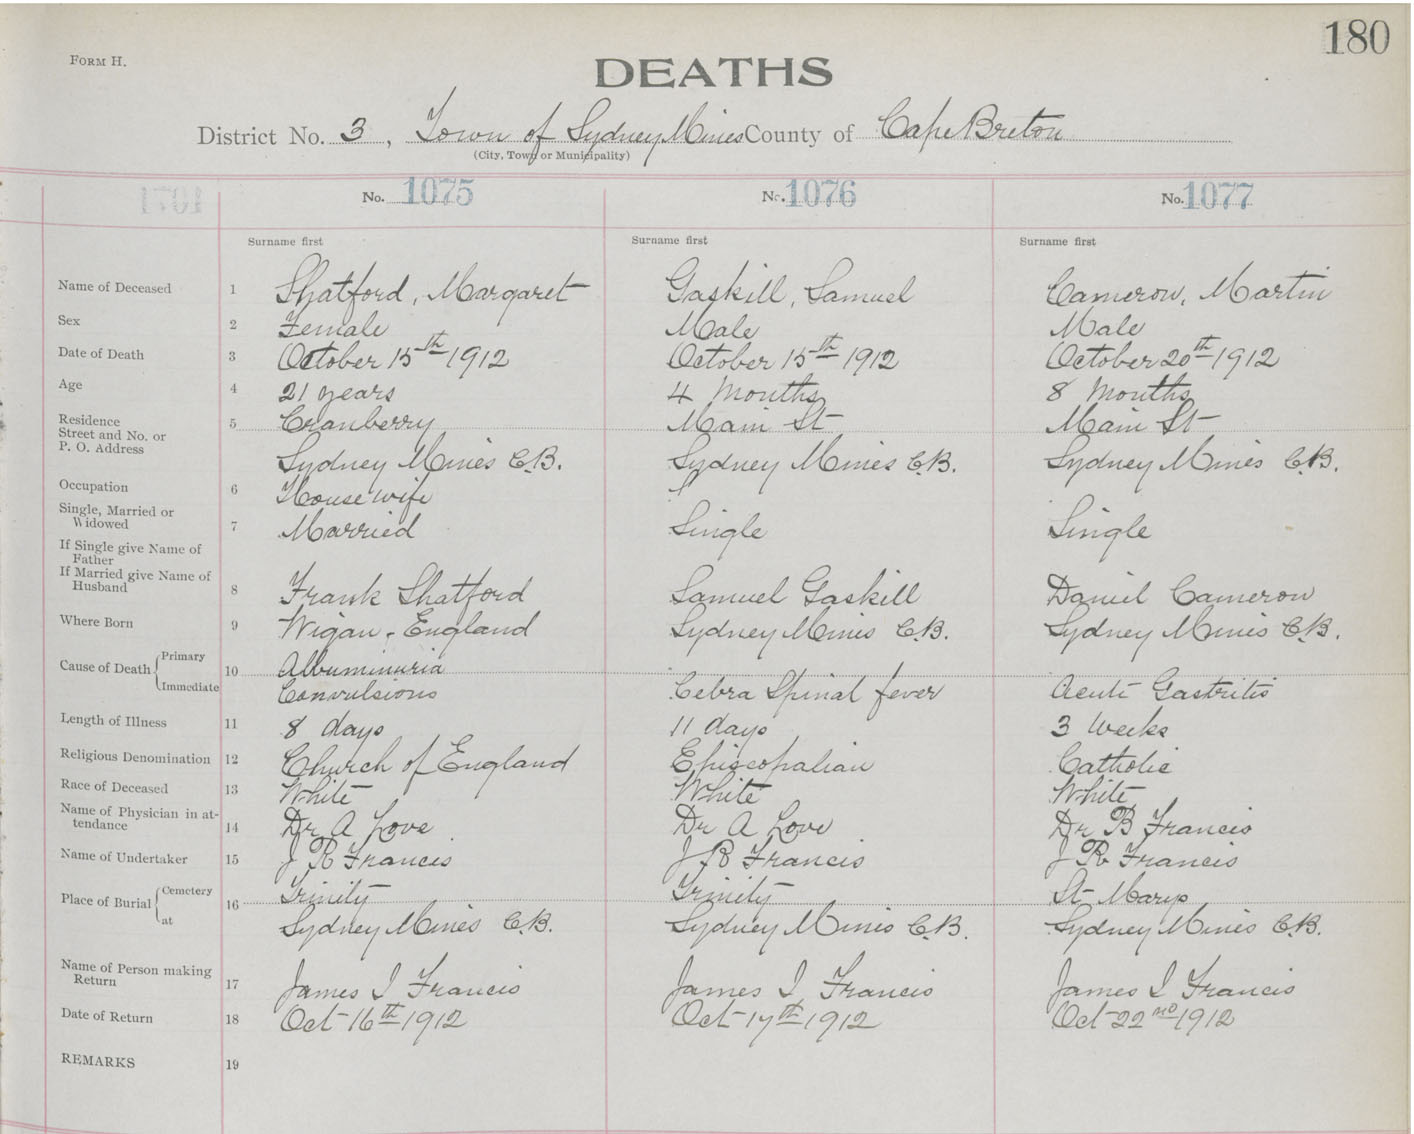 180
FORM H.
DEATHS
District No. 3, Town of Sydney Mines County of Cape Breton
(City, Town or Municipality)
1074 No. 1075 No. 1076 No. 1077
Surname first Surname first Surname first
Name of Deceased 1 Shatford, Margaret Gaskill, Samuel Cameron, Martin
Sex 2 Female Male Male
Date of Death 3 October 15th 1912 October 15th 1912 October 20th 1912
Age 4 21 years 4 Months 8 Months
Residence Street and No. or P. O. Address 5 Cranberry Main St Main St
Sydney Mines C.B. Sydney Mines C.B. Sydney Mines C.B.
Occupation 6 House wife
Single, Married or Widowed 7 Married Single Single
If Single give Name of Father
If Married give Name of Husband 8 Frank Shatford Samuel Gaskill Daniel Cameron
Where Born 9 Wigan - England Sydney Mines C.B. Sydney Mines C.B.
Cause of Death Primary 10 Albuminuria
Immediate Convulsions Cebra Spinal fever Acute Gastritis
Length of Illness 11 8 days 11 days 3 weeks
Religious Denomination 12 Church of England Episcopalian Catholic
Race of Deceased 13 White White White
Name of Physician in attendance 14 Dr A Love Dr A Love Dr B Francis
Name of Undertaker 15 J R Francis J R Francis J R Francis
Place of Burial Cemetery 16 Trinity Trinity St Marys
at Sydney Mines C.B. Sydney Mines C.B. Sydney Mines C.B.
Name of Person making Return 17 James I Francis James I Francis James I Francis
Date of Return 18 Oct-16th 1912 Oct-17th 1912 Oct-22nd 1912
REMARKS 19